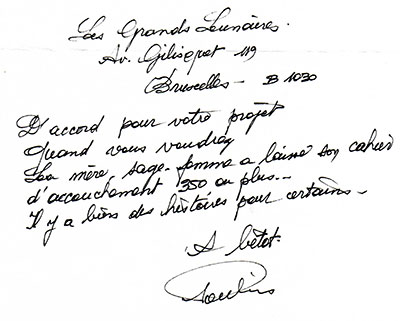 Les Grands Lunaires.
Av. Gilisquet 119
Bruxelles - B 1030
D'accord pour votre projet
Quand vous voudrez
La mère, sage-femme a laissé son cahier
d'accouchement 350 ou plus...
Il y a biens des histoires pour certains -
A bêtot.